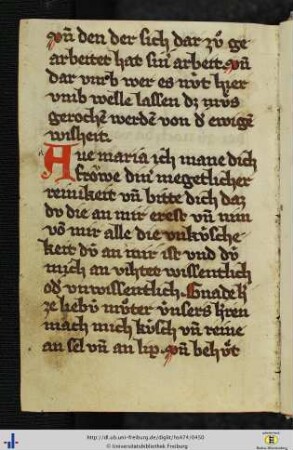 vn̄ den der sich dar zů ge
arbeitet hat sin arbeit. vn̄
dar vmb wer es nüt hier
vmb welle lassen dz můs
gerochē werdē von dʼ ewigē
wisheit.
Aue maria ich mane dich
frowe din megetlicher
reinikeit vn̄ bitte dich daz
dv die an mir erest vn̄ nim
vō mir alle die vnküsche
keit dü an mir ist vnd dü
mich an vihtet wissentlich
odʼ vnwissentlich. Gnade
ze liebü můter vnsers hʼren
mach mich küsch vn̄ reine
an sel vn̄ an lip. vn̄ behůt
http://dl.ub.uni-freiburg.de/diglit/hs474/0450
© Universitätsbibliothek Freiburg